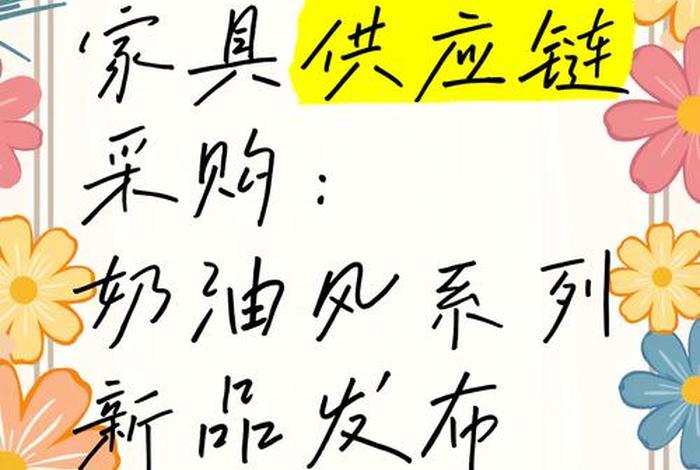 家具供应链
采购:
奶油风系列
新品发布